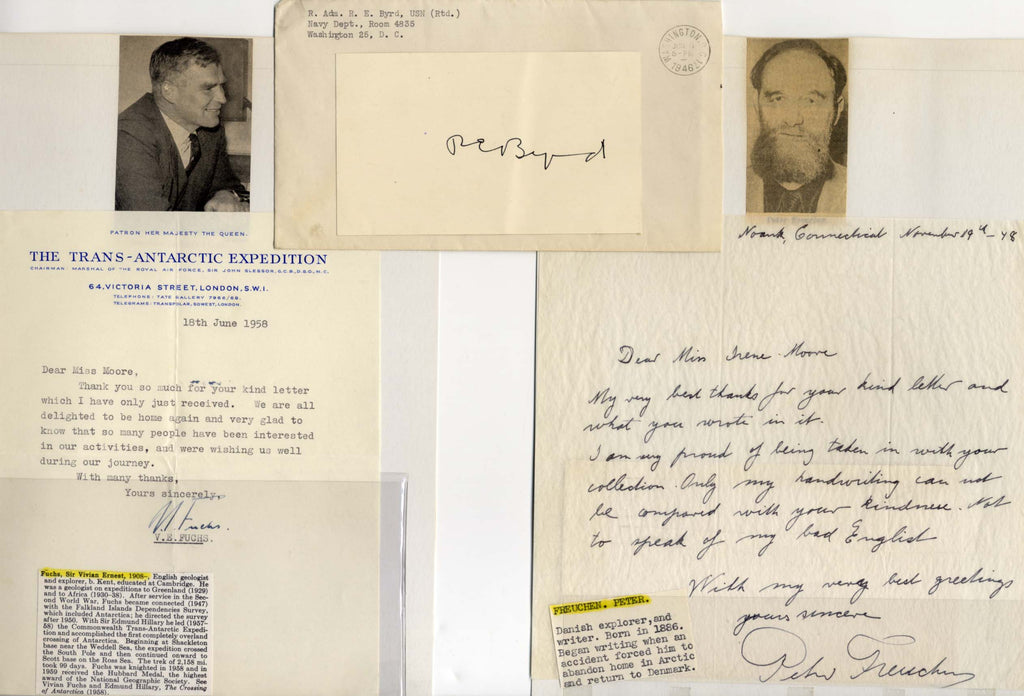 R. Adm. R. E. Byrd, USN (Rtd.)
Navy Dept., Room 4835
Washington 25, D. C.
WASHINGTON, D.C.
1946
R E Byrd
PATRON HER MAJESTY THE QUEEN.
THE TRANS-ANTARCTIC EXPEDITION
CHAIRMAN: MARSHAL OF THE ROYAL AIR FORCE, SIR JOHN SLESSOR, G.C.B., D.S.O., M.C.
64, VICTORIA STREET, LONDON, S.W.1.
TELEPHONE: TATE GALLERY 7966/68.
TELEGRAMS: TRANSPOLAR, SOWEST, LONDON.
18th June 1958
Dear Miss Moore,
Thank you so much for your kind letter
which I have only just received. We are all
delighted to be home again and very glad to
know that so many people have been interested
in our activities, and were wishing us well
during our journey.
With many thanks,
Yours sincerely,
V.E. Fuchs.
V.E. FUCHS.
Fuchs, Sir Vivian Ernest, 1908-, English geologist
and explorer, b. Kent, educated at Cambridge. He
was a geologist on expeditions to Greenland (1929)
and to Africa (1930-38). After service in the Sec-
ond World War, Fuchs became connected (1947)
with the Falkland Islands Dependencies Survey,
which included Antarctica; he directed the survey
after 1950. With Sir Edmund Hillary he led (1957-
58) the Commonwealth Trans-Antarctic Expedi-
tion and accomplished the first completely overland
crossing of Antarctica. Beginning at Shackleton
base near the Weddell Sea, the expedition crossed
the South Pole and then continued onward to
Scott base on the Ross Sea. The trek of 2,158 mi.
took 99 days. Fuchs was knighted in 1958 and in
1959 received the Hubbard Medal, the highest
award of the National Geographic Society. See
Vivian Fuchs and Edmund Hillary, The Crossing
of Antarctica (1958).
Peter Freuchen
Noank, Connecticut November 19th - 48
Dear Miss Irene Moore
My very best thanks for your kind letter and
what you wrote in it.
I am my proud of being taken in with your
collection. Only my handwriting can not
be compared with your kindness. Not
to speak of my bad English
With my very best greetings
yours sincere
Peter Freuchen
FREUCHEN. PETER.
Danish explorer, and
writer. Born in 1886.
Began writing when an
accident forced him to
abandon home in Arctic
and return to Denmark.